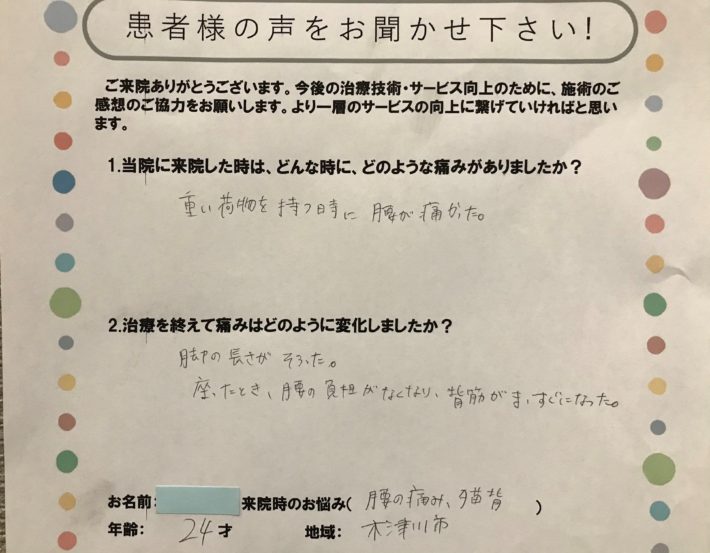 患者様の声をお聞かせ下さい!
ご来院ありがとうございます。今後の治療技術・サービス向上のために、施術のご
感想のご協力をお願いします。より一層のサービスの向上に繋げていければと思い
ます。
1.当院に来院した時は、どんな時に、どのような痛みがありましたか？
重い荷物を持つ時に腰が痛かった。
2.治療を終えて痛みはどのように変化しましたか？
脚の長さがそろった。
座ったとき、腰の負担がなくなり、背筋がまっすぐになった。
お名前: 来院時のお悩み( 腰の痛み、猫背 )
年齢: 24才 地域: 木津川市